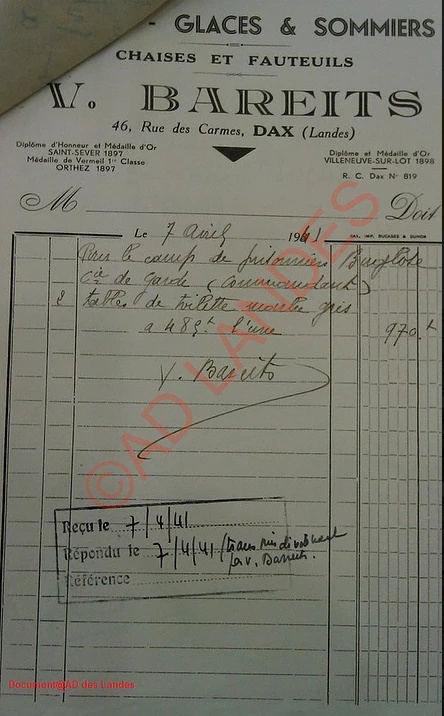 - GLACES & SOMMIERS
CHAISES ET FAUTEUILS
V. BAREITS
46, Rue des Carmes, DAX (Landes)
Diplôme d'Honneur et Médaille d'Or
SAINT-SEVER 1897
Médaille de Vermeil 1re Classe
ORTHEZ 1897
Diplôme et Médaille d'Or
VILLENEUVE-SUR-LOT 1898
R. C. Dax N° 819
M
Doit
Le 7 Avril 1941
DAX, IMP. DUCASSE & GUINON
Pour le camp de prisonniers Buglose
Cie de Garde (Commandant)
2 tables de toilette marbre gris
a 485 f l'une 970 f
V. Bareits
Reçu le 7/4/41
Répondu le 7/4/41 /
par V. Bareits.
Référence
©AD LANDES
Document@AD des Landes